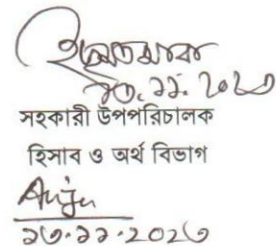 ১৩.১১.২০২৩
সহকারী উপপরিচালক
হিসাব ও অর্থ বিভাগ
Anju
১৩.১১.২০২৩